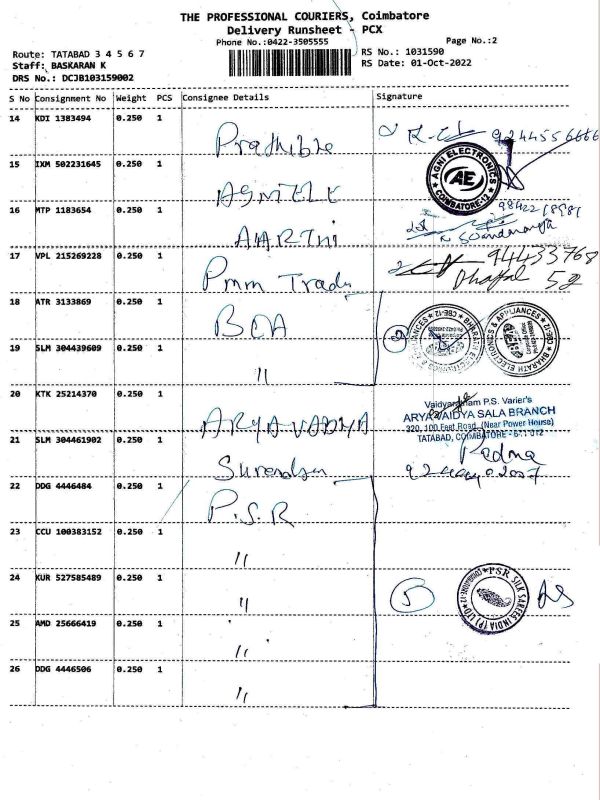 THE PROFESSIONAL COURIERS, Coimbatore
Delivery Runsheet - PCX
Phone No.:0422-3505555
Page No.:2
Route: TATABAD 3 4 5 6 7
RS No.: 1031590
Staff: BASKARAN K
RS Date: 01-Oct-2022
DRS No.: DCJB103159002
S No Consignment No Weight PCS Consignee Details Signature
14 KDI 1383494 0.250 1 Prathibha 9244556666
AGNI ELECTRONICS
AE
COIMBATORE-12
15 IXM 502231645 0.250 1
16 MTP 1183654 0.250 1 AARTHI
17 VPL 215269228 0.250 1 Pmm Trade 94433768
52
18 ATR 3133869 0.250 1 BEA 2
BHARATH ELECTRONICS & APPLIANCES
CBE-12
BHARATH ELECTRONICS & APPLIANCES
CBE-12
19 SLM 304439609 0.250 1 "
20 KTK 25214370 0.250 1 ARYA VADYA
Vaidyaratnam P.S. Varier's
ARYA VAIDYA SALA BRANCH
320, 100 Feet Road, (Near Power House)
TATABAD, COIMBATORE - 641 012
21 SLM 304461902 0.250 1 Surendran Padma
22 DDG 4446484 0.250 1 P.S.R
23 CCU 100383152 0.250 1 "
24 KUR 527585489 0.250 1 " 5
PSR SILK SAREES INDIA (P) LTD
25 AMD 25666419 0.250 1 "
26 DDG 4446506 0.250 1 "